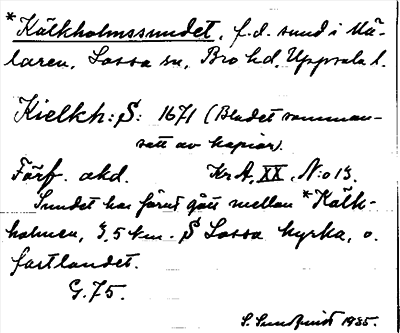 *Kälkholmssundet, f.d. sund i Mä-
laren, Lossa sn, Bro hd, Uppsala l.
Kielkh: S: 1671 (Bladet samman-
satt av kopior)
Förf. okd. KrA, XX, N:o 13.
Sundet har förut gått mellan *Kälk-
holmen, 3,5 km. S Lossa kyrka, o.
fastlandet.
G. 75.
S. Sundquist 1935.